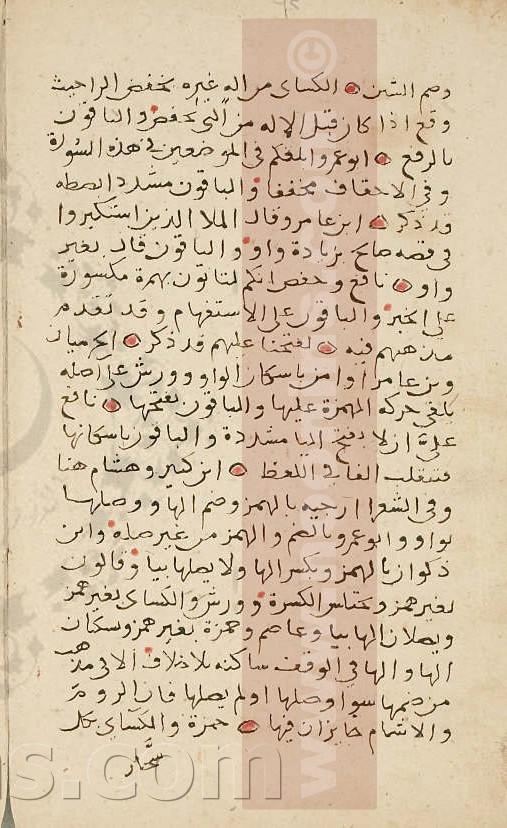 وضم الشين الكسائي من اله غيره بخفض الرا حيث
وقع اذا كان قبل الاله من التي تخفض والباقون
بالرفع ابو عمرو ابلغكم في الموضعين في هذه السورة
وفي الاحقاف مخففا والباقون مشددا بصطه
قد ذكر ابن عامر وقال الملا الذين استكبروا
في قصة صالح بزيادة واو والباقون قال بغير
واو نافع وحفص انكم لتاتون بهمزة مكسورة
على الخبر والباقون على الاستفهام وقد تقدم
مذهبهم فيه لفتحنا عليهم قد ذكر الحرميان
وبن عامر او امن باسكان الواو وورش على اصله
يلقي حركه الهمزة عليها والباقون بفتحها نافع
على ان لا بفتح اليا مشددة والباقون باسكانها
فتنقلب الفا في اللفظ ابن كثير وهشام هنا
وفي الشعرا ارجيه بالهمز وضم الها ووصلها
بواو وابو عمرو بالضم والهمز من غير صله وابن
ذكوان بالهمز وبكسر الها ولا يصلها بيا وقالون
بغير همز وبختلس الكسرة وورش والكسائي بغير همز
ويصلان الها بيا وعاصم وحمزة بغير همز وسكان
الها والها في الوقف ساكنه بلا خلاف الا في مذهب
من ضمها سوا وصلها او لم يصلها فان الروم
والاشمام جايزان فيها حمزة والكسائي بكل
سحار